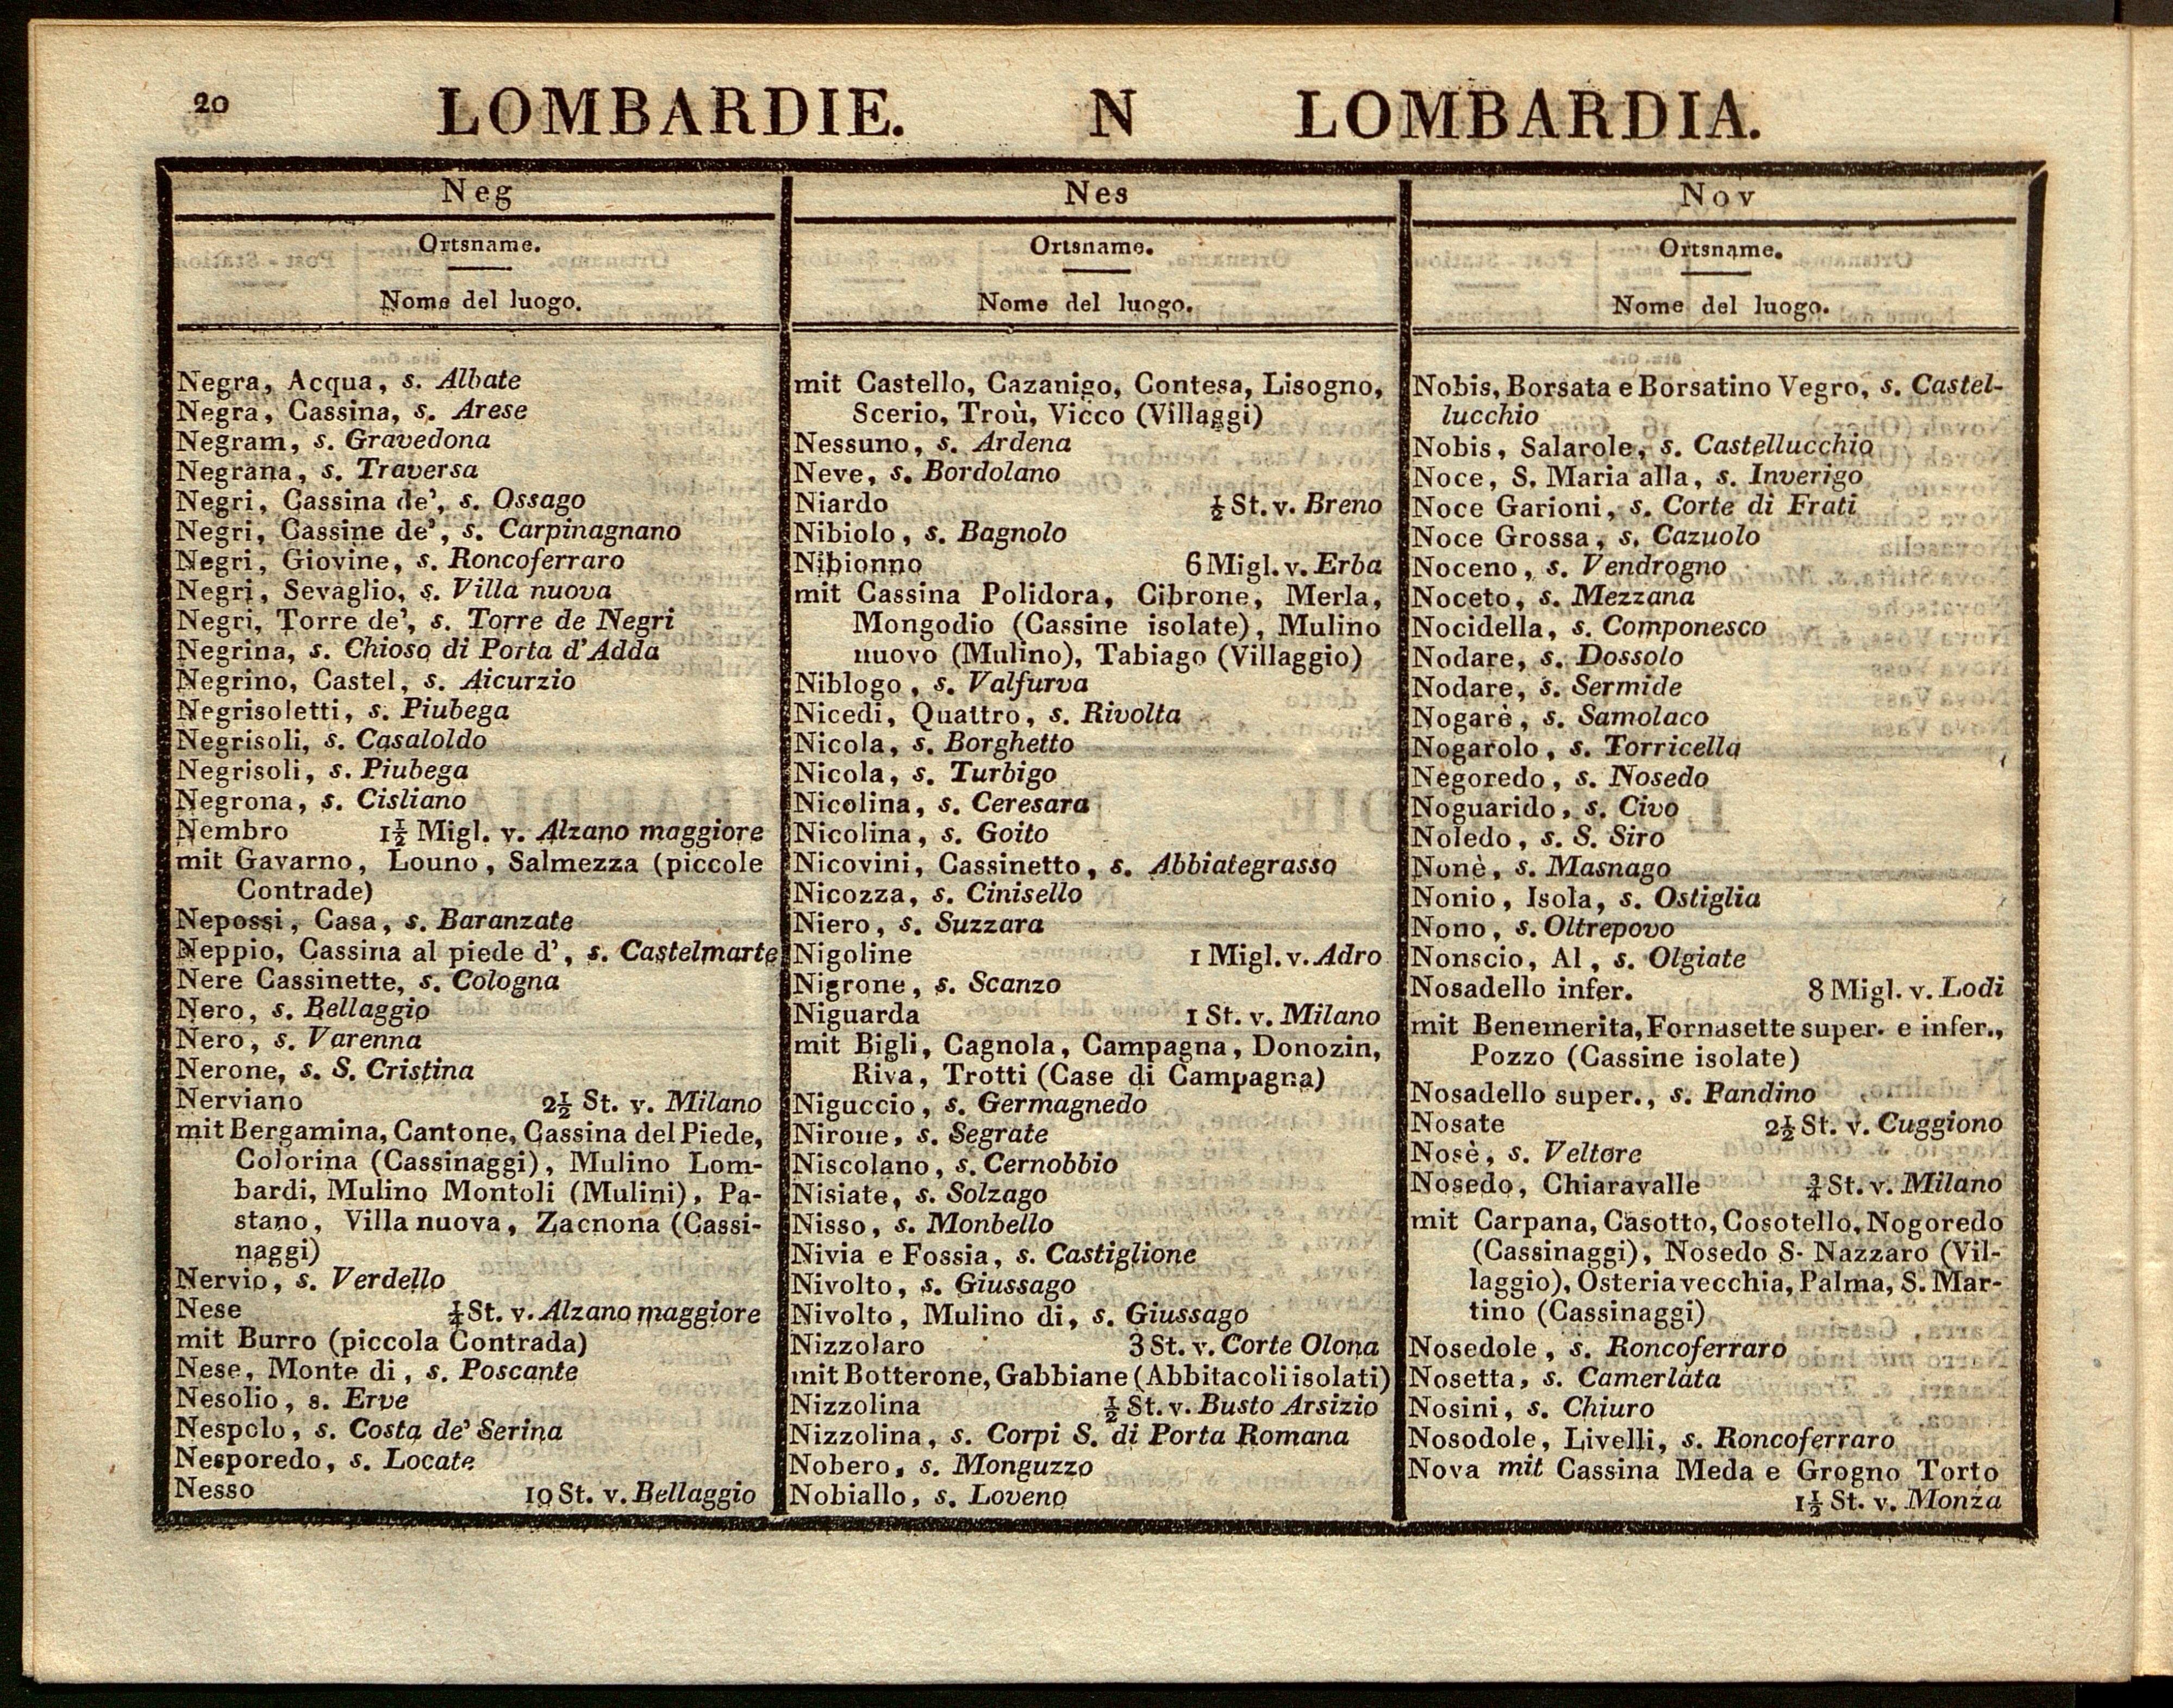 20
LOMBARDIE. N LOMBARDIA.
Neg
Ortsname.
Nome del luogo.
Negra, Acqua, s. Albate
Negra, Cassina, s. Arese
Negram, s. Gravedona
Negrana, s. Traversa
Negri, Cassina de', s. Ossago
Negri, Cassine de', s. Carpinagnano
Negri, Giovine, s. Roncoferraro
Negri, Sevaglio, s. Villa nuova
Negri, Torre de', s. Torre de Negri
Negrina, s. Chioso di Porta d'Adda
Negrino, Castel, s. Aicurzio
Negrisoletti, s. Piubega
Negrisoli, s. Casaloldo
Negrisoli, s. Piubega
Negrona, s. Cisliano
Nembro 1½ Migl. v. Alzano maggiore
mit Gavarno, Louno, Salmezza (piccole
Contrade)
Nepossi, Casa, s. Baranzate
Neppio, Cassina al piede d', s. Castelmarte
Nere Cassinette, s. Cologna
Nero, s. Bellaggio
Nero, s. Varenna
Nerone, s. S. Cristina
Nerviano 2½ St. v. Milano
mit Bergamina, Cantone, Cassina del Piede,
Colorina (Cassinaggi), Mulino Lom-
bardi, Mulino Montoli (Mulini), Pa-
stano, Villa nuova, Zacnona (Cassi-
naggi)
Nervio, s. Verdello
Nese ¼ St. v. Alzano maggiore
mit Burro (piccola Contrada)
Nese, Monte di, s. Poscante
Nesolio, s. Erve
Nespolo, s. Costa de' Serina
Nesporedo, s. Locate
Nesso 10 St. v. Bellaggio
Nes
Ortsname.
Nome del luogo.
mit Castello, Cazanigo, Contesa, Lisogno,
Scerio, Troù, Vicco (Villaggi)
Nessuno, s. Ardena
Neve, s. Bordolano
Niardo ½ St. v. Breno
Nibiolo, s. Bagnolo
Nibionno 6 Migl. v. Erba
mit Cassina Polidora, Cibrone, Merla,
Mongodio (Cassine isolate), Mulino
nuovo (Mulino), Tabiago (Villaggio)
Niblogo, s. Valfurva
Nicedi, Quattro, s. Rivolta
Nicola, s. Borghetto
Nicola, s. Turbigo
Nicolina, s. Ceresara
Nicolina, s. Goito
Nicovini, Cassinetto, s. Abbiategrasso
Nicozza, s. Cinisello
Niero, s. Suzzara
Nigoline 1 Migl. v. Adro
Nigrone, s. Scanzo
Niguarda 1 St. v. Milano
mit Bigli, Cagnola, Campagna, Donozin,
Riva, Trotti (Case di Campagna)
Niguccio, s. Germagnedo
Nirone, s. Segrate
Niscolano, s. Cernobbio
Nisiate, s. Solzago
Nisso, s. Monbello
Nivia e Fossia, s. Castiglione
Nivolto, s. Giussago
Nivolto, Mulino di, s. Giussago
Nizzolaro 3 St. v. Corte Olona
mit Botterone, Gabbiane (Abbitacoli isolati)
Nizzolina ½ St. v. Busto Arsizio
Nizzolina, s. Corpi S. di Porta Romana
Nobero, s. Monguzzo
Nobiallo, s. Loveno
Nov
Ortsname.
Nome del luogo.
Nobis, Borsata e Borsatino Vegro, s. Castel-
lucchio
Nobis, Salarole, s. Castellucchio
Noce, S. Maria alla, s. Inverigo
Noce Garioni, s. Corte di Frati
Noce Grossa, s. Cazuolo
Noceno, s. Vendrogno
Noceto, s. Mezzana
Nocidella, s. Componesco
Nodare, s. Dossolo
Nodare, s. Sermide
Nogarè, s. Samolaco
Nogarolo, s. Torricella
Negoredo, s. Nosedo
Noguarido, s. Civo
Noledo, s. S. Siro
Nonè, s. Masnago
Nonio, Isola, s. Ostiglia
Nono, s. Oltrepovo
Nonscio, Al, s. Olgiate
Nosadello infer. 8 Migl. v. Lodi
mit Benemerita, Fornasette super. e infer.,
Pozzo (Cassine isolate)
Nosadello super., s. Pandino
Nosate 2½ St. v. Cuggiono
Nosè, s. Veltore
Nosedo, Chiaravalle ¾ St. v. Milano
mit Carpana, Casotto, Cosotello, Nogoredo
(Cassinaggi), Nosedo S. Nazzaro (Vil-
laggio), Osteria vecchia, Palma, S. Mar-
tino (Cassinaggi)
Nosedole, s. Roncoferraro
Nosetta, s. Camerlata
Nosini, s. Chiuro
Nosodole, Livelli, s. Roncoferraro
Nova mit Cassina Meda e Grogno Torto
1½ St. v. Monza